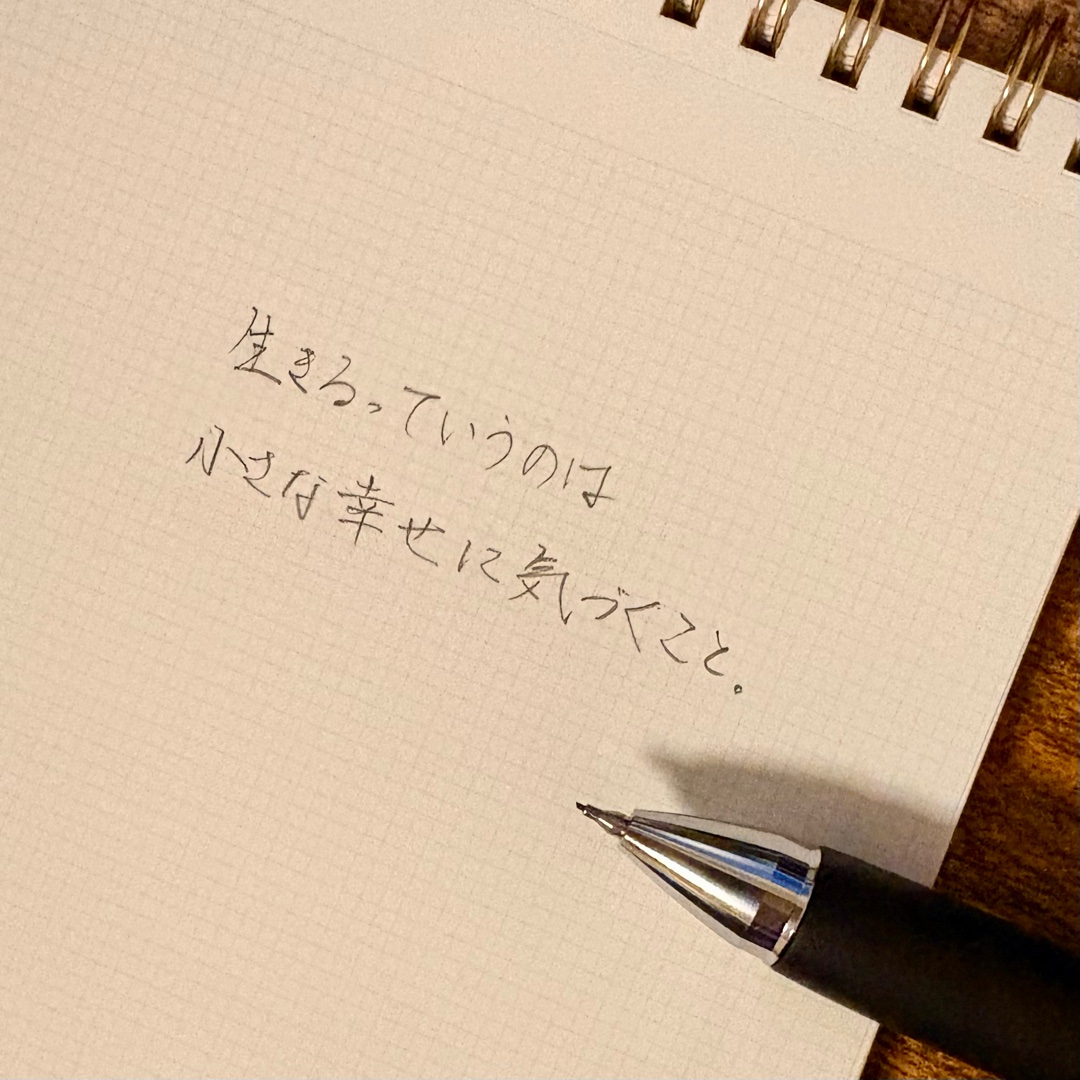 生きるっていうのは
小さな幸せに気づくこと。